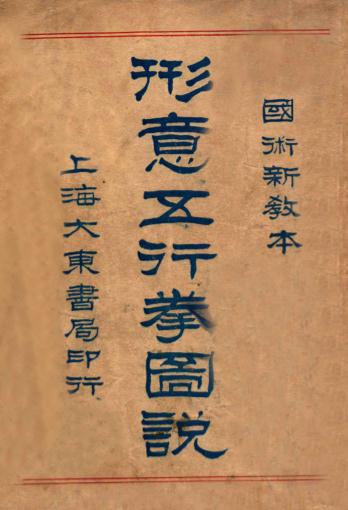 國術新教本
形意五行拳圖説
上海大東書局印行